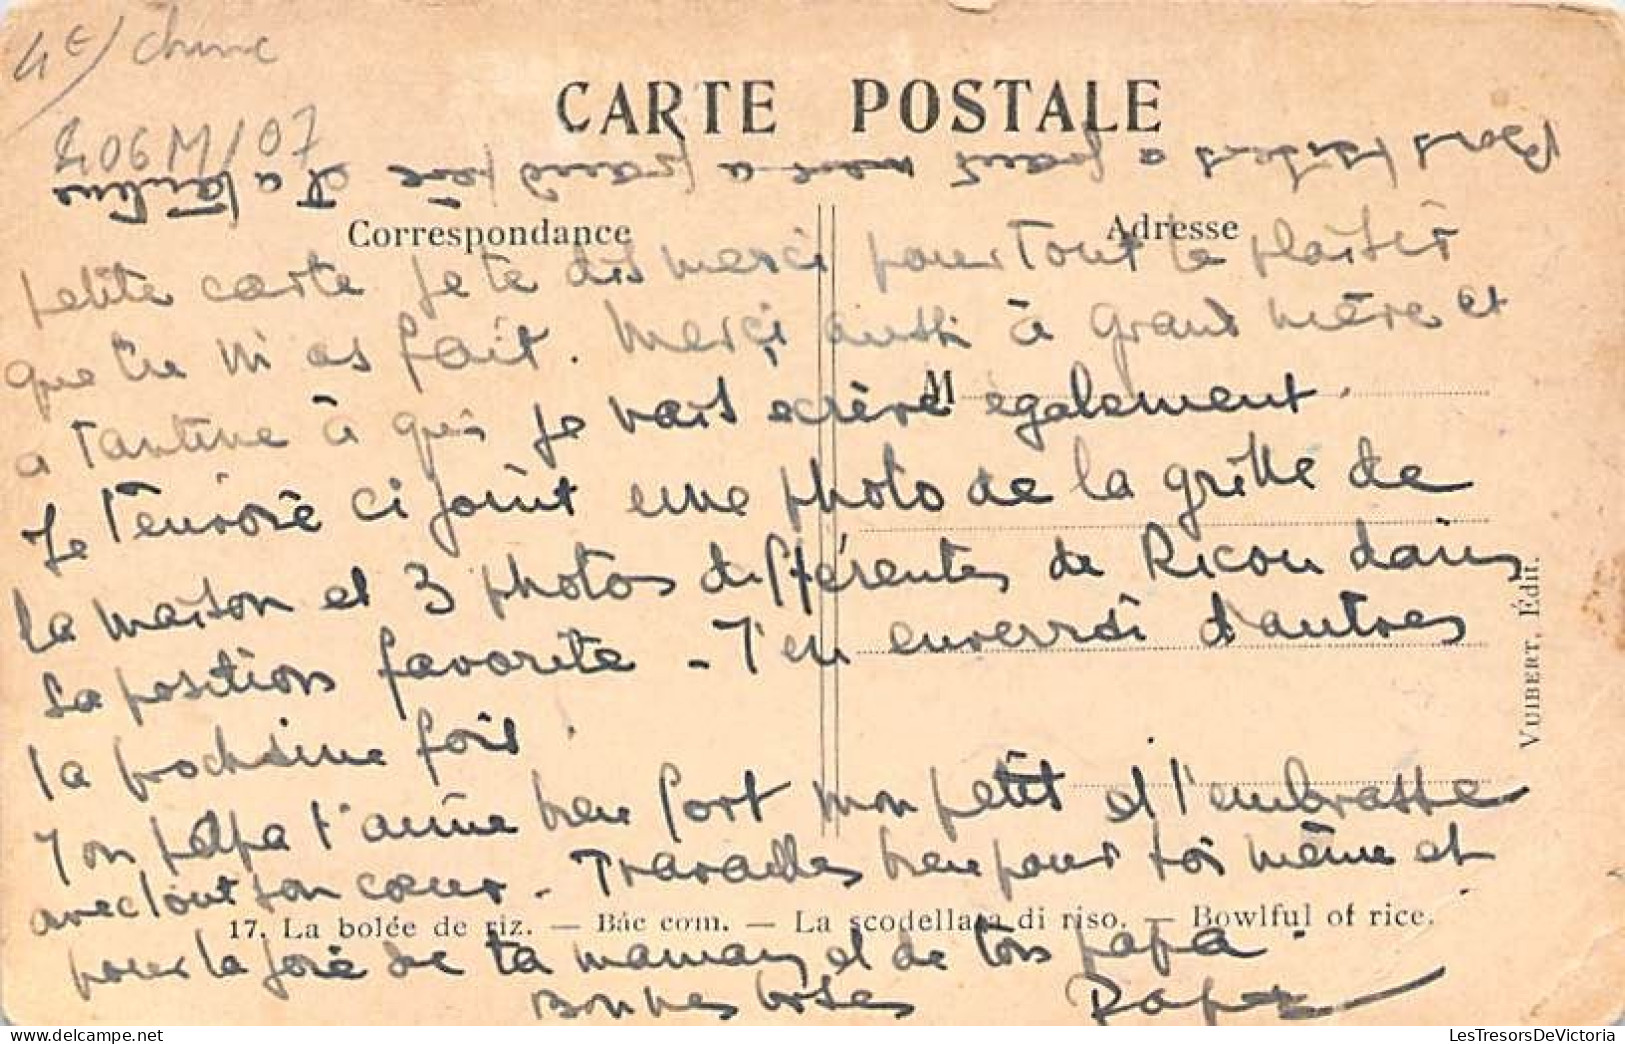 4E/ Chine
CARTE POSTALE
206M/07
Bons baisers a grand mere a grand père et a tantine
Correspondance
Adresse
petite carte je te dis merci pour tout le plaisir
que tu m'as fait. Merci aussi à grand mère et
a Tantine à qui je vais ecrire également.
M
Je t'envoie ci joint une photo de la grille de
la maison et 3 photos différentes de Ricou dans
sa position favorite - J'en enverrai d'autres
la prochaine fois.
Ton papa t'aime bien fort mon petit et t'embrasse
avec tout son cœur - Travailles bien pour toi même et
17. La bolée de riz. — Bác com. — La scodellata di riso. — Bowlful of rice.
pour la joie de ta maman et de ton papa.
Bonnes bises Papa
VUIBERT, Édit.
LesTresorsDeVictoria.com